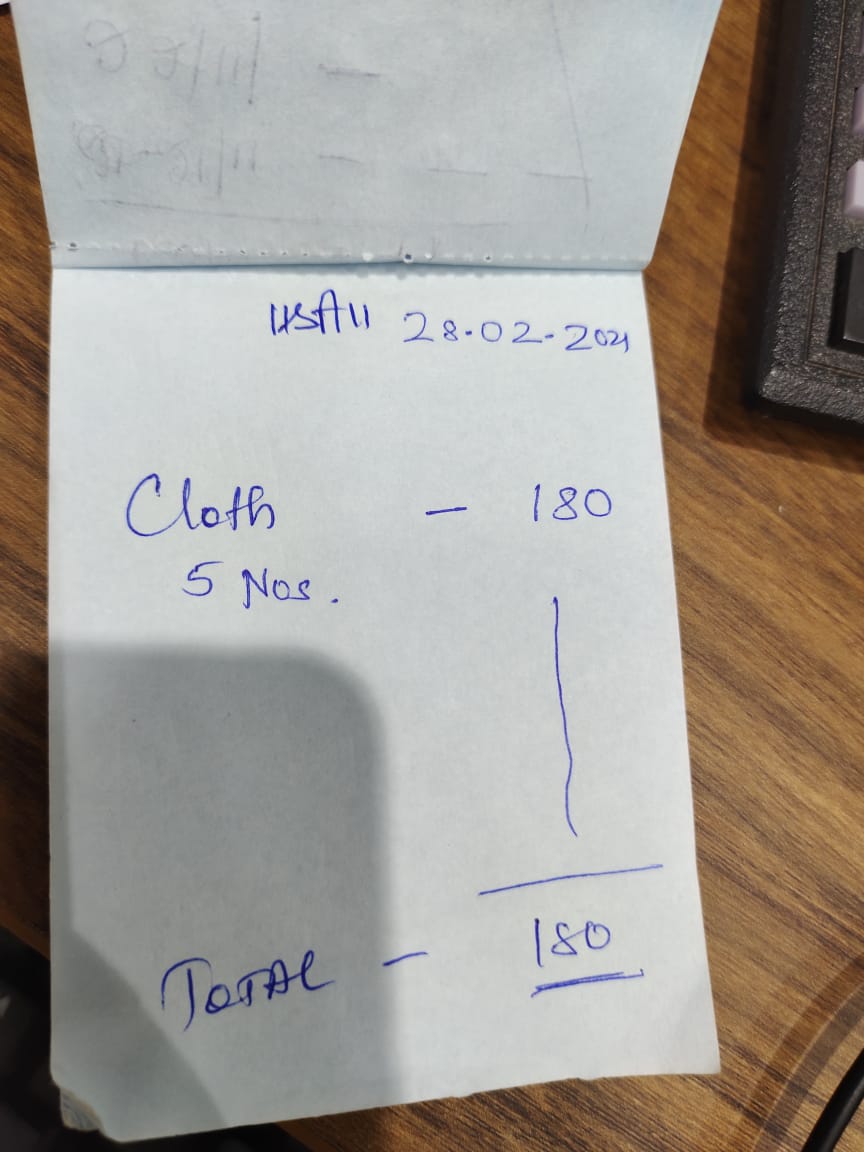 28.02.2021
Cloth — 180
5 Nos.
TOTAL — 180